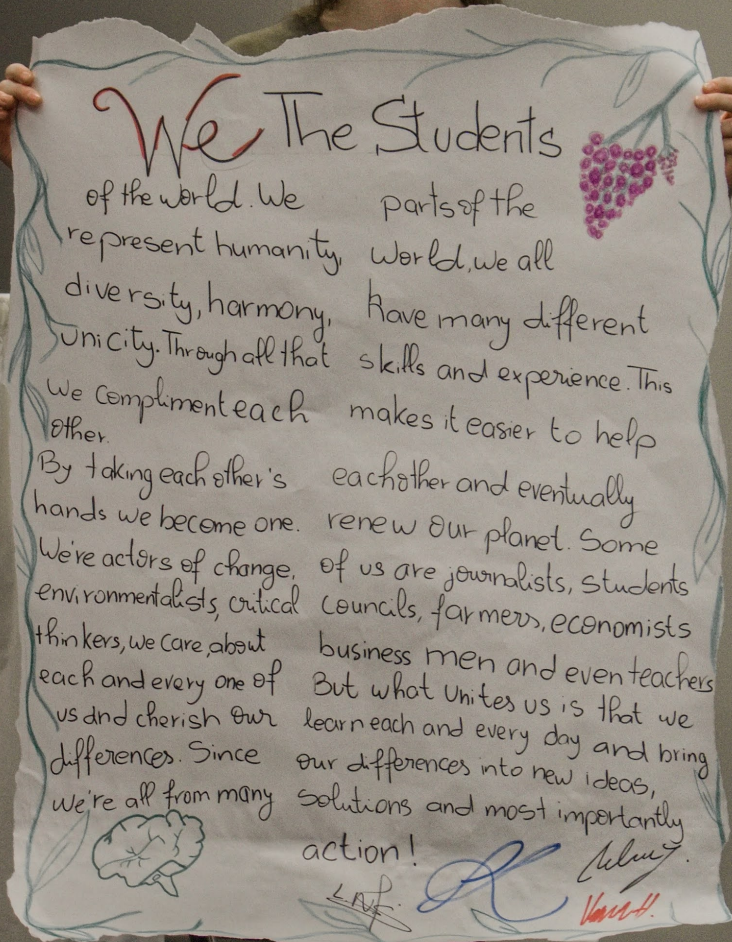 We The Students
of the world. We
represent humanity,
diversity, harmony,
unicity. Through all that
we compliment each
other.
By taking each other's
hands we become one.
We're actors of change,
environmentalists, critical
thinkers, we care, about
each and every one of
us and cherish our
differences. Since
we're all from many
parts of the
world, we all
have many different
skills and experience. This
makes it easier to help
eachother and eventually
renew our planet. Some
of us are journalists, students
councils, farmers, economists
business men and even teachers
But what unites us is that we
learn each and every day and bring
our differences into new ideas,
solutions and most importantly
action!